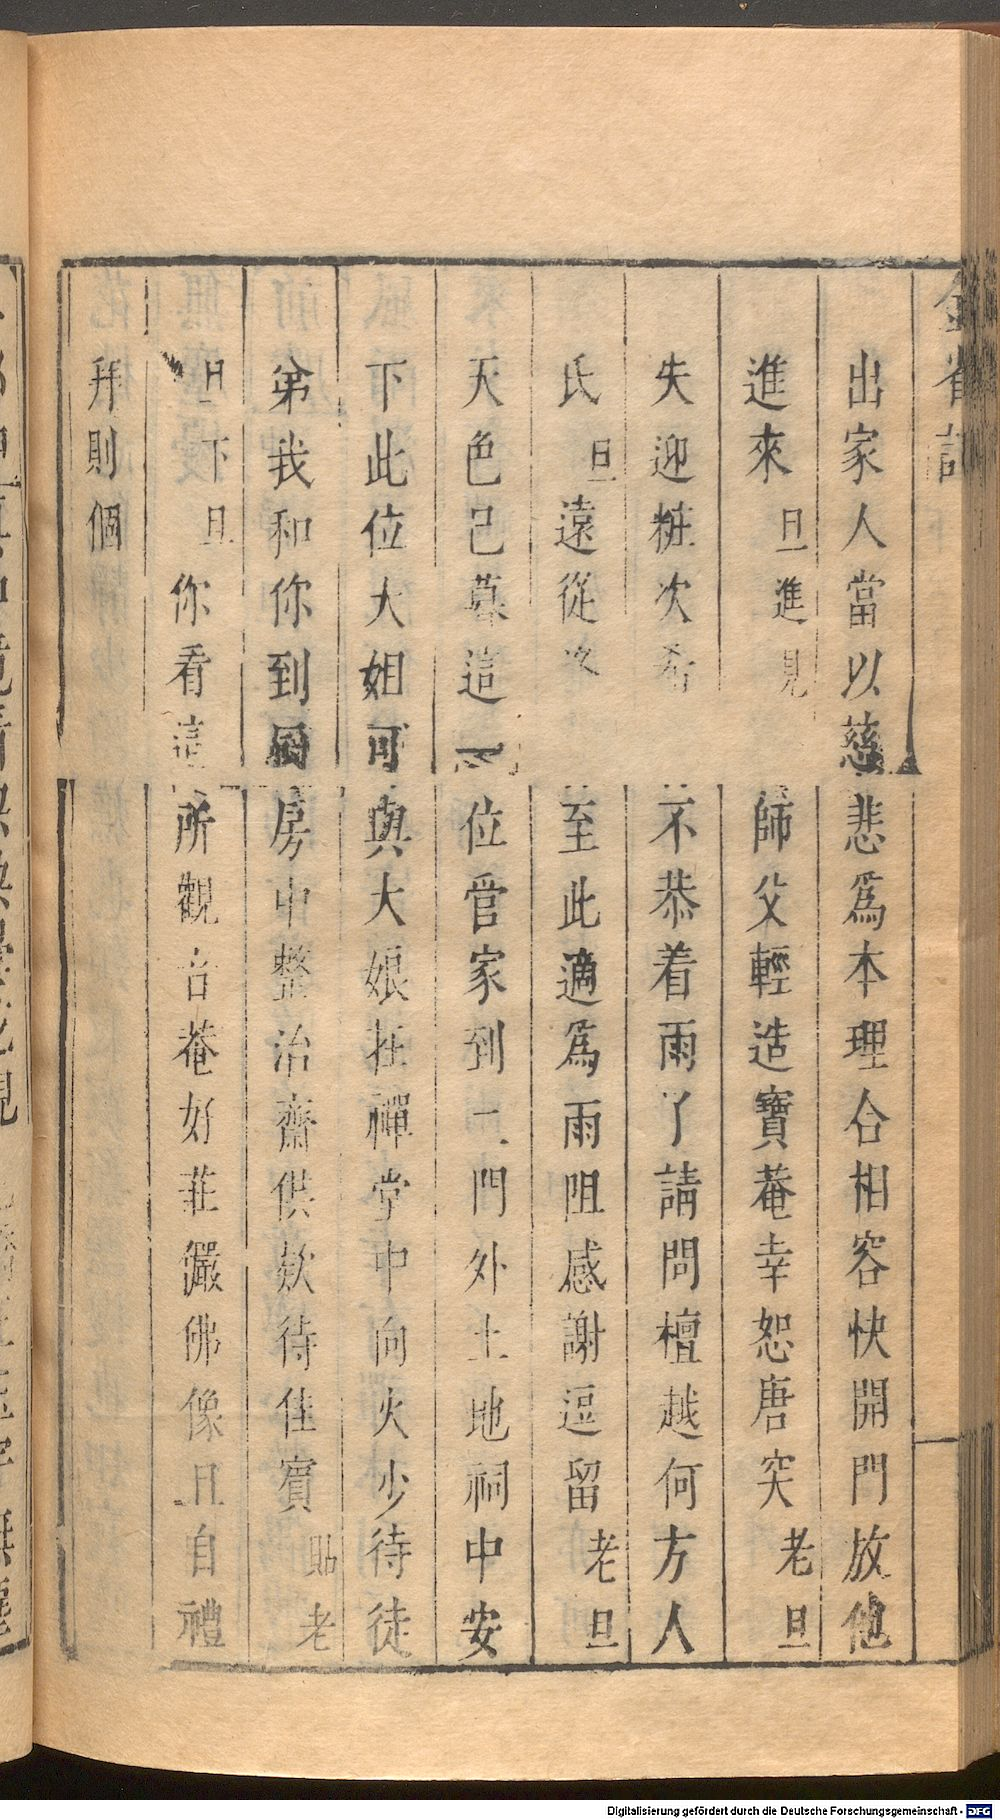 出家人當以慈悲爲本理合相容快開門放他
進來旦進見師父輕造寶菴幸恕唐突老旦
失迎粧次希不恭着雨了請問檀越何方人
氏旦遠從至此適爲雨阻感謝逗留老旦
天色已暮這位管家到二門外土地祠中安
下此位大姐可與大娘在禪堂中向火少待徒
弟我和你到厨房中整治齋供欵待佳賓貼老
旦下旦你看這所觀音菴好莊嚴佛像且自禮
拜則個
Digitalisierung gefördert durch die Deutsche Forschungsgemeinschaft - DFG